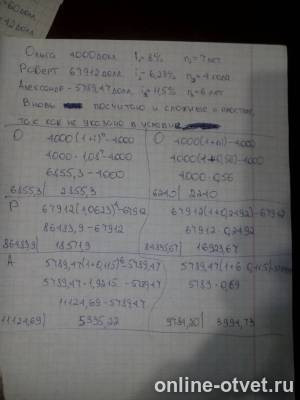 Ольга 4000 долл. i₁=8% n₁=7 лет
Роберт 67912 долл. i₂=6,23% n₂=4 года
Александр - 5789,47 долл i₃=11,5% n₃=6 лет
Вновь посчитано и сложные и простые
так как не указано в условии
О
4000(1+i)ⁿ-4000
4000·1,08⁷-4000
6855,3-4000
6855,3 | 2855,3
О
4000(1+ni)-4000
4000·0,56
6240 | 2240
Р
67912(1,0623)⁴-67912
86483,9-67912
86483,9 | 18571,9
67912(1+0,2492)-67912
67912·0,2492
16923,67
А
5789,47(1+0,115)⁶-5789,47
5789,47·1,9215-5789,47
11124,69-5789,47
11124,69 | 5335,22
5789,47(1+6·0,115)
5789·0,69
9784,20 | 3994,73
online-otvet.ru